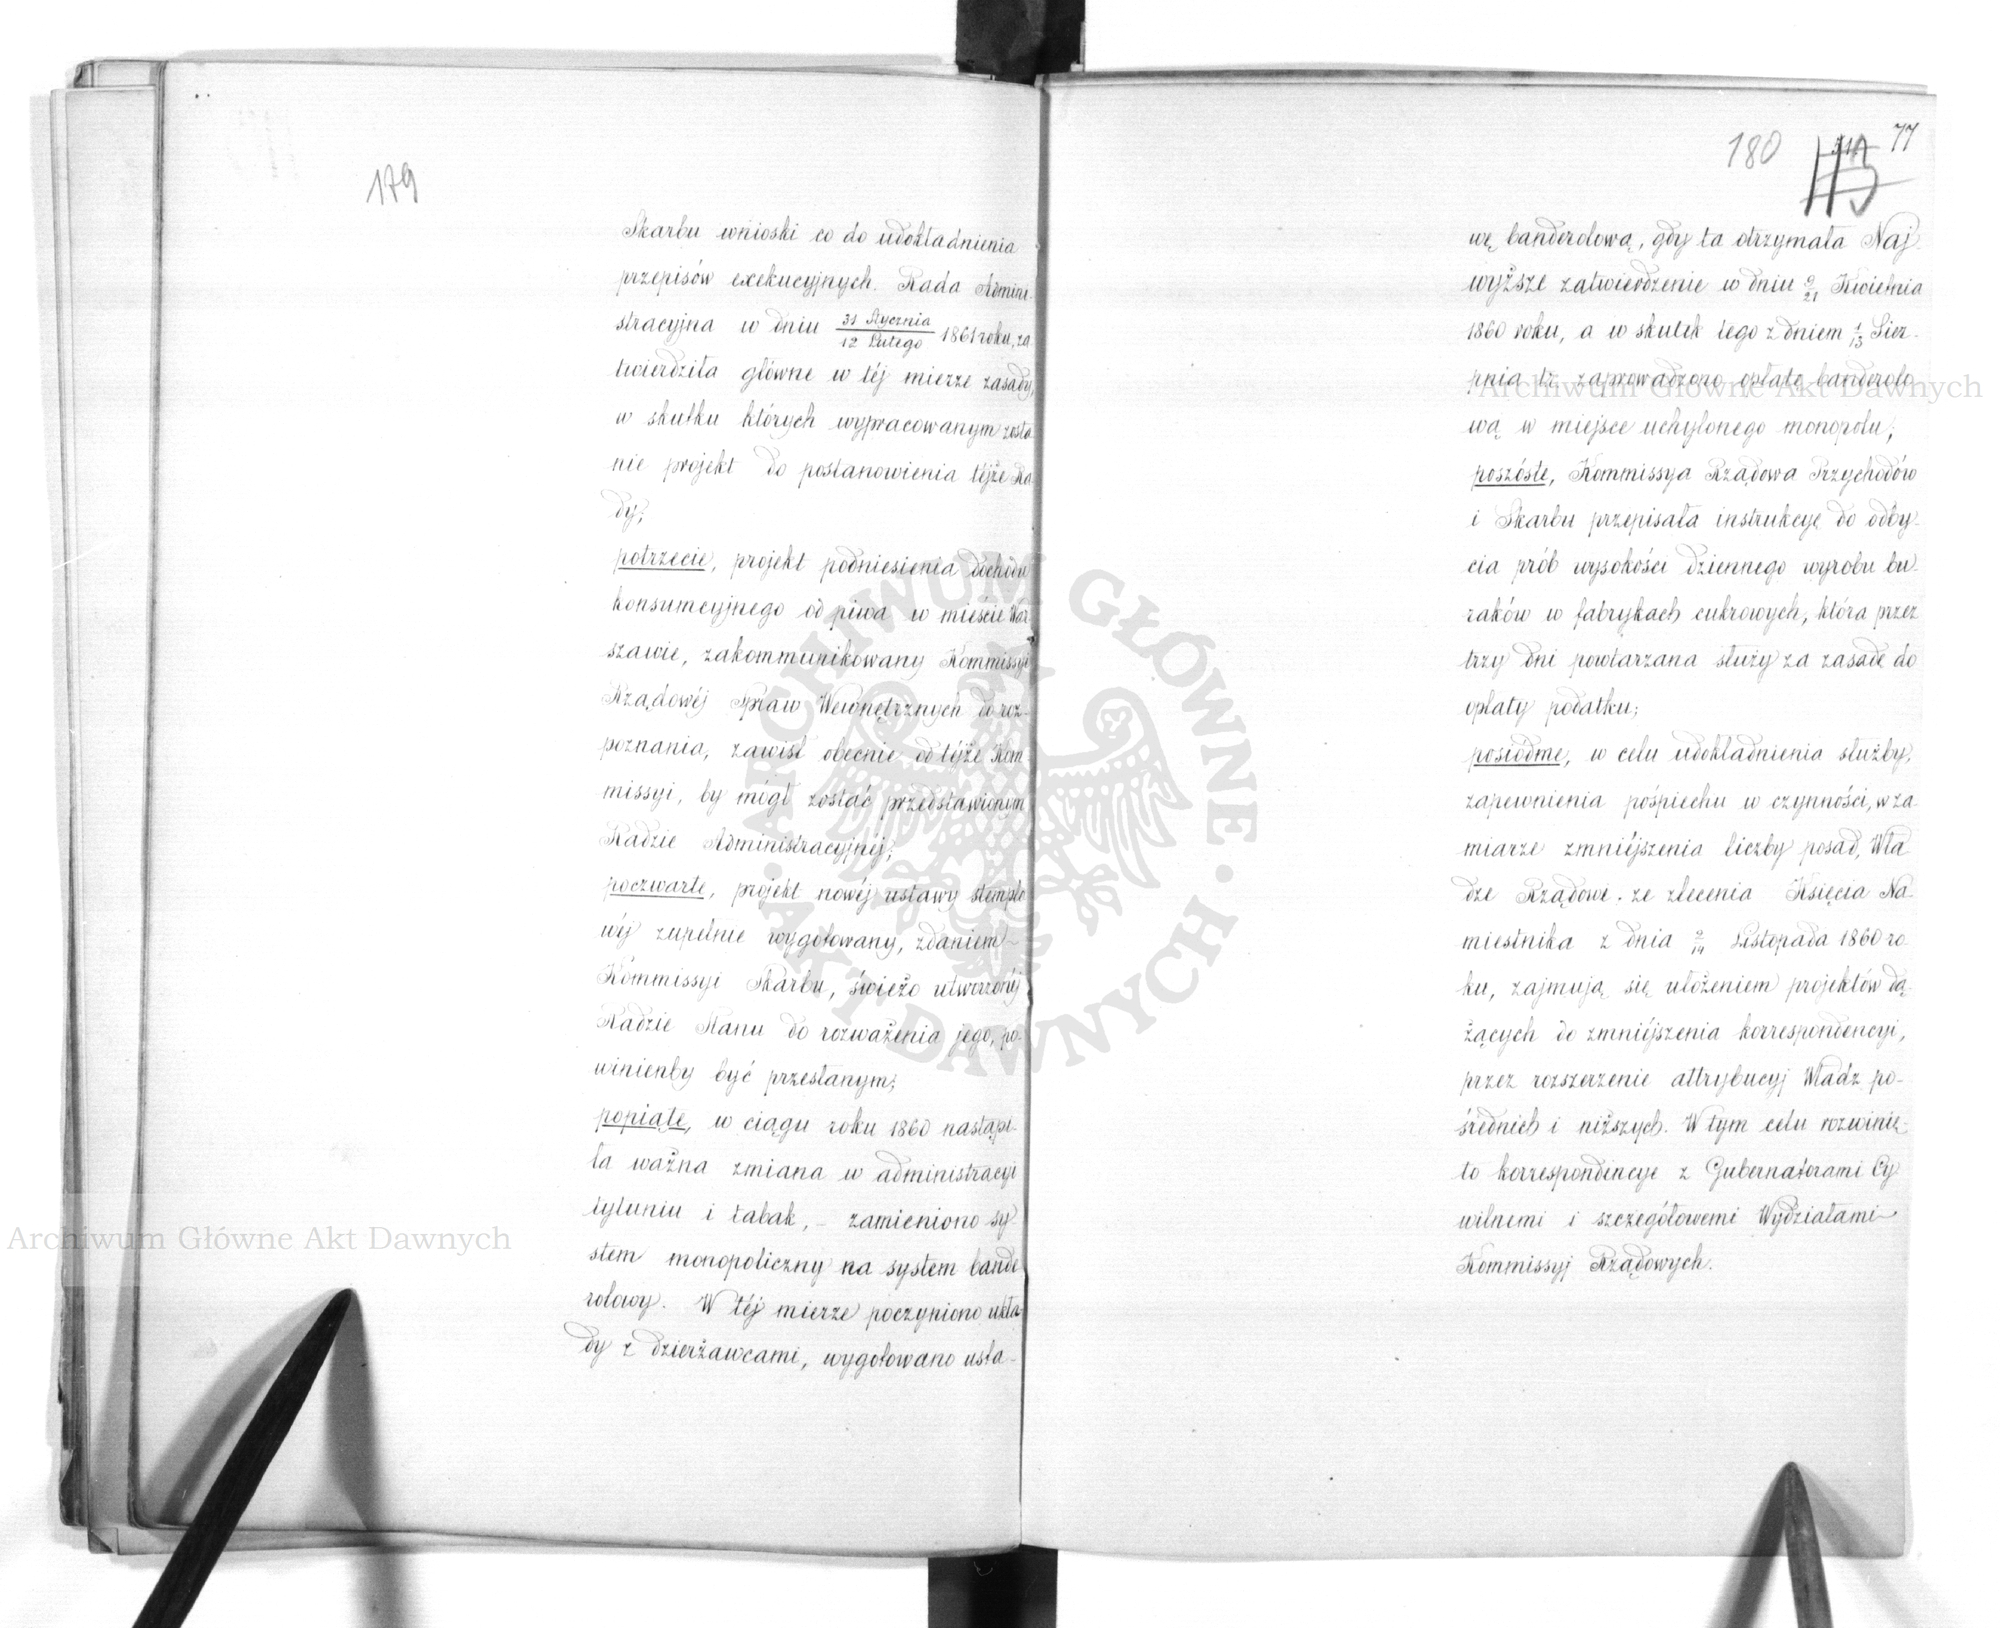 179
Skarbu wnioski co do udokładnienia
przepisów exekucyjnych. Rada Admini-
stracyjna w dniu 31 Stycznia / 12 Lutego 1861 roku, za
twierdziła główne w téj mierze zasady,
w skutku których wypracowanym zosta
nie projekt do postanowienia téjże Ra
dy;
potrzecie, projekt podniesienia dochodu
konsumcyjnego od piwa w mieście War
szawie, zakommunikowany Kommissyi
Rządowéj Spraw Wewnętrznych do roz-
poznania, zawisł obecnie od téjże Kom
missyi, by mógł zostać przedstawionym
Radzie Administracyjnéj;
poczwarte, projekt nowéj ustawy stemplo
wéj zupełnie wygotowany, zdaniem
Kommissyi Skarbu, świeżo utworzonéj
Radzie Stanu do rozważenia jego, po-
winienby być przesłanym;
popiąte, w ciągu roku 1860 nastąpi-
ła ważna zmiana w administracyi
tytuniu i tabak, – zamieniono sy
stem monopoliczny na system bande
rolowy. W téj mierze poczyniono ukła-
dy z dzierżawcami, wygotowano usta-
180 77
113
wę banderolową, gdy ta otrzymała Naj
wyższe zatwierdzenie w dniu 9/21 Kwietnia
1860 roku, a w skutek tego z dniem 1/13 Sier-
pnia tr. zaprowadzono opłatę banderolo
wą w miejsce uchylonego monopolu;
poszóste, Kommissya Rządowa Przychodów
i Skarbu przepisała instrukcyę do odby-
cia prób wysokości dziennego wyrobu bu-
raków w fabrykach cukrowych, która przez
trzy dni powtarzana służy za zasadę do
opłaty podatku;
posiódme, w celu udokładnienia służby,
zapewnienia pośpiechu w czynności, w za-
miarze zmniéjszenia liczby posad, Wła
dze Rządowe. ze zlecenia Księcia Na-
miestnika z dnia 2/14 Listopada 1860 ro-
ku, zajmują się ułożeniem projektów dą-
żących do zmniéjszenia korrespondencyi,
przez rozszerzenie attrybucyj Władz po-
średnich i niższych. W tym celu rozwinię-
to korrespondencye z Gubernatorami Cy
wilnemi i szczegółowemi Wydziałami
Kommissyj Rządowych.
Archiwum Główne Akt Dawnych
Archiwum Główne Akt Dawnych
ARCHIWUM GŁÓWNE · AKT DAWNYCH ·